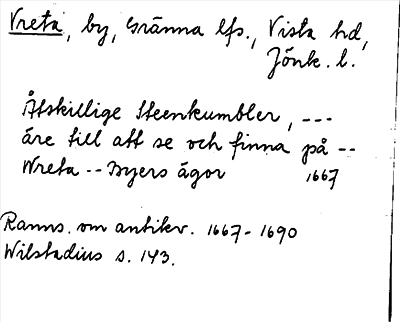 Vreta, by, Gränna lfs., Vista hd,
Jönk. l.
Åtskillige Steenkumbler, ---
äre till att se och finna på --
Wreta -- Byers ägor 1667
Ranns. om antikv. 1667-1690
Wilstadius s. 143.